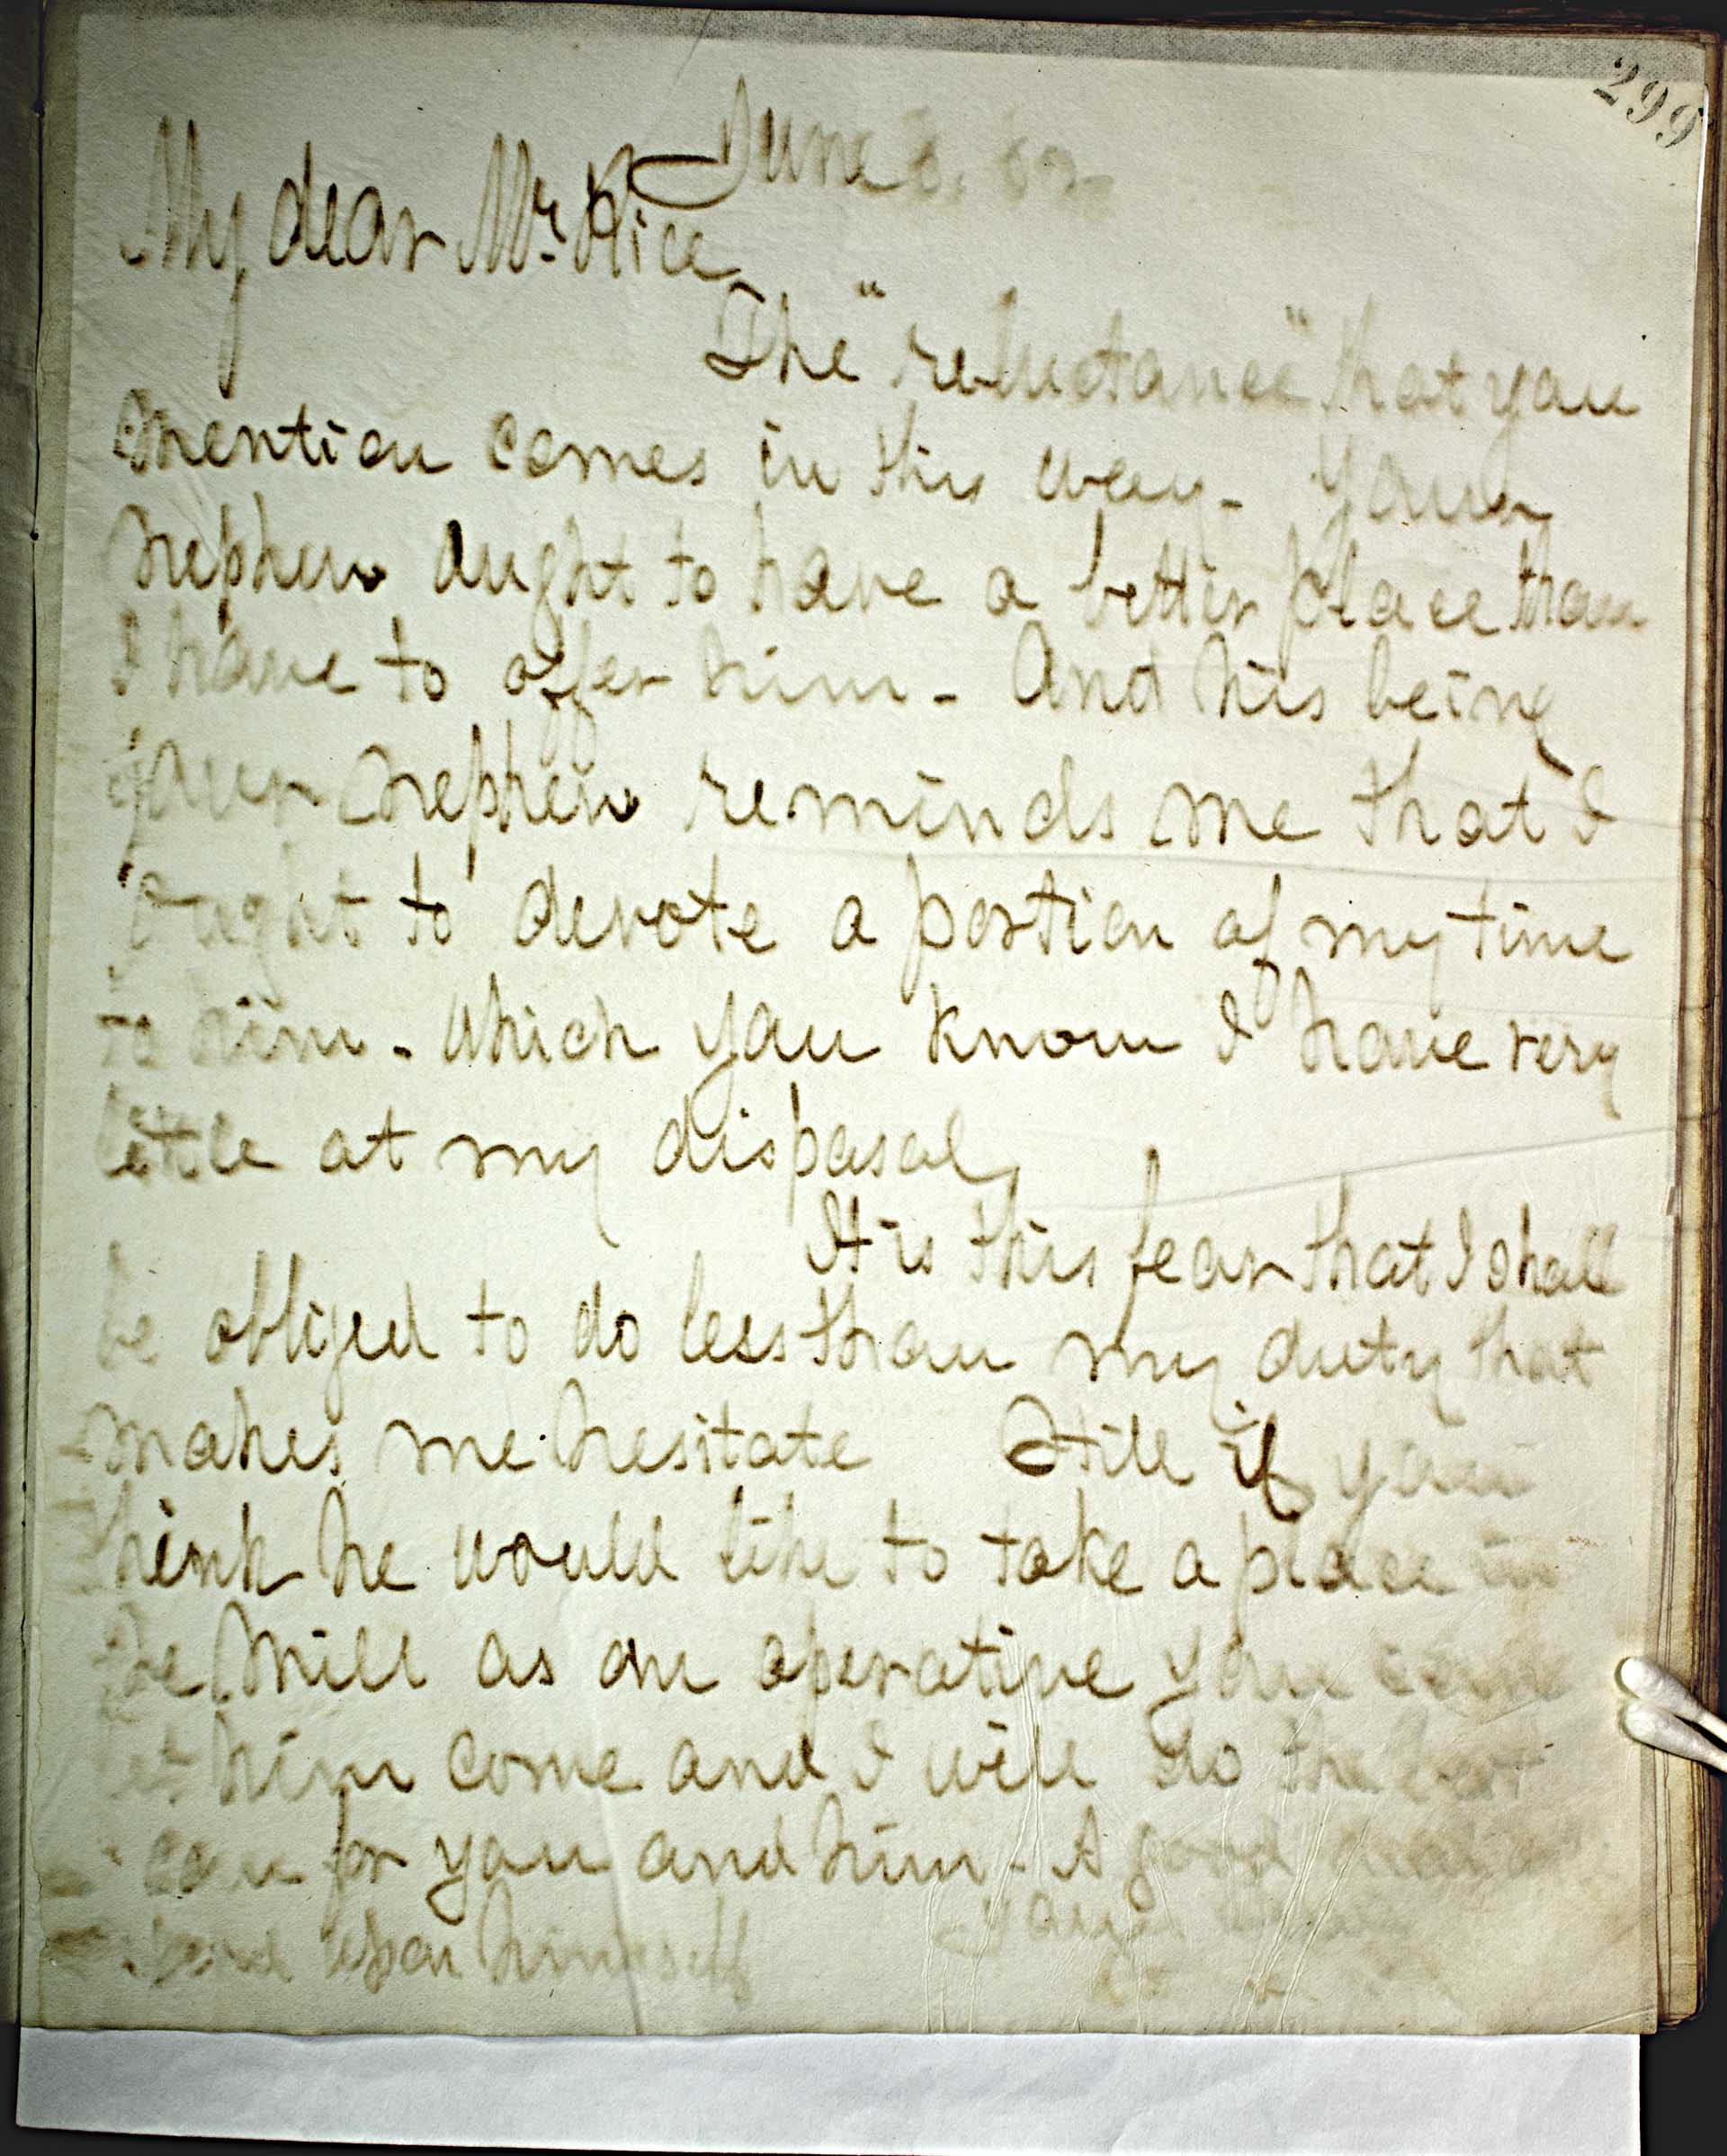 299
June
My dear Mr. Rice
The "reluctance" that you
mention comes in this way - Your
nephew ought to have a better place than
I have to offer him - And his being
your nephew reminds me that I
ought to devote a portion of my time
to him - which you know I have very
little at my disposal,
It is this fear that I shall
be obliged to do less than my duty that
makes me hesitate Still if you
think he would like to take a place in
the Mill as an operative you can
let him come and I will do the best
I can for you and him - A good deal
upon himself